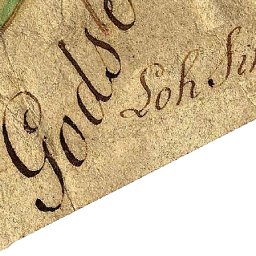 Godse
Loh Sin